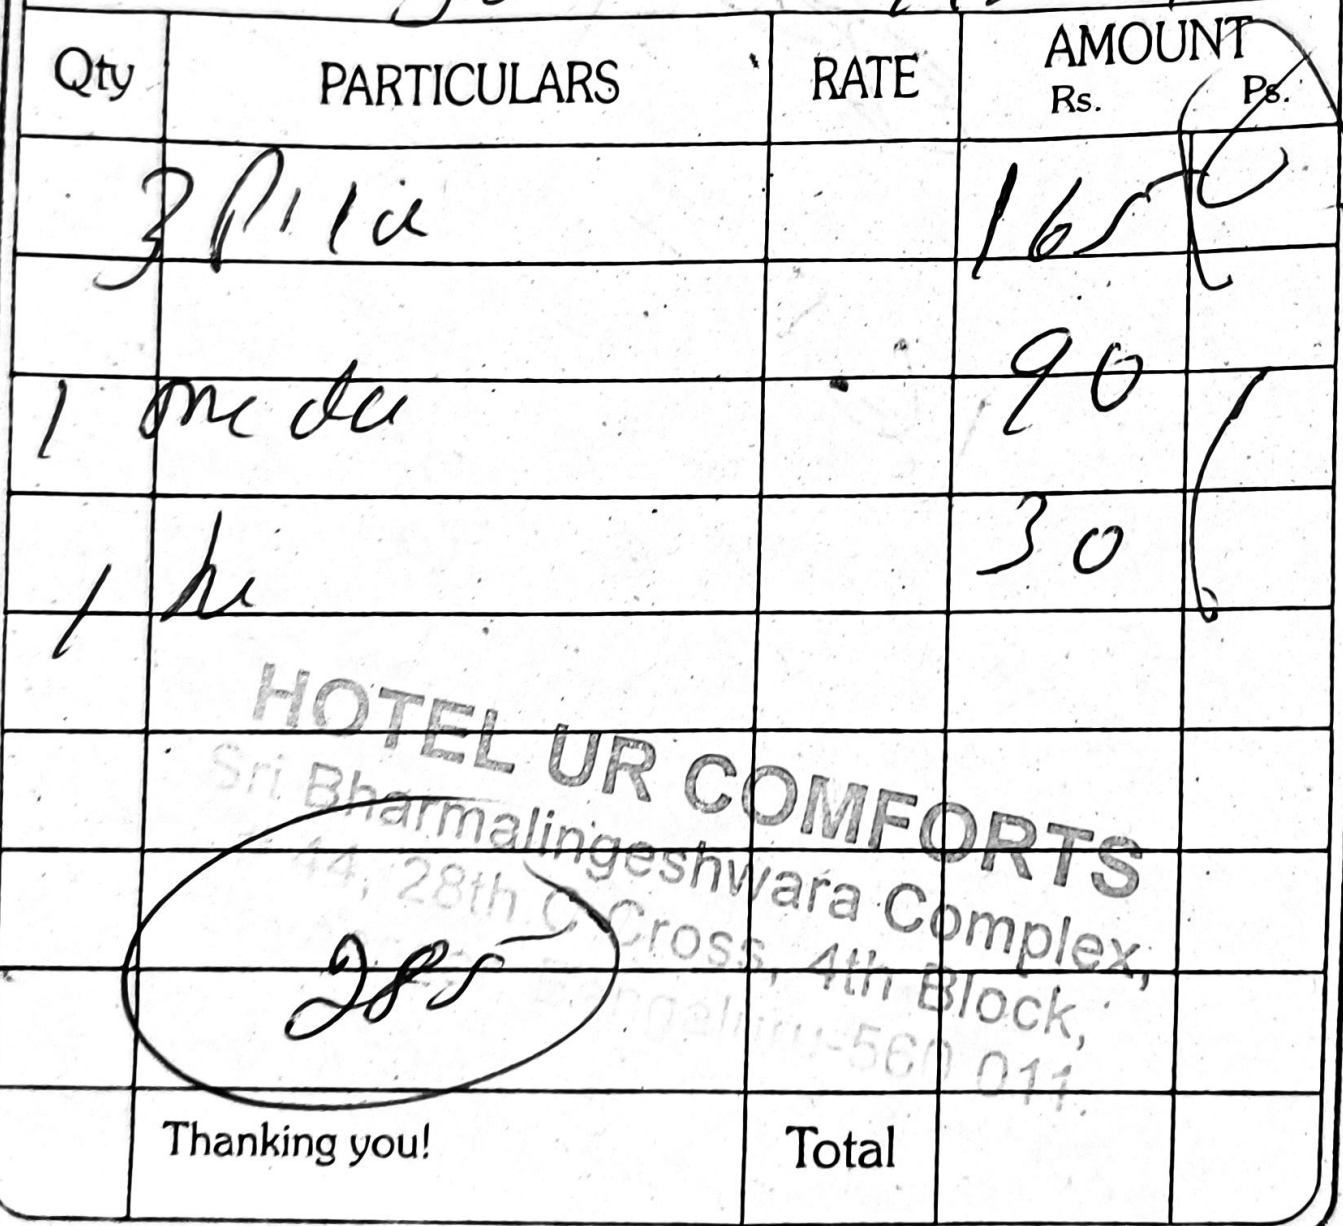 Qty PARTICULARS RATE AMOUNT
Rs. Ps.
3 165
1 90
1 30
HOTEL UR COMFORTS
Sri Bharmalingeshwara Complex,
44, 28th C Cross, 4th Block,
Bengaluru-560 011.
285
Thanking you! Total